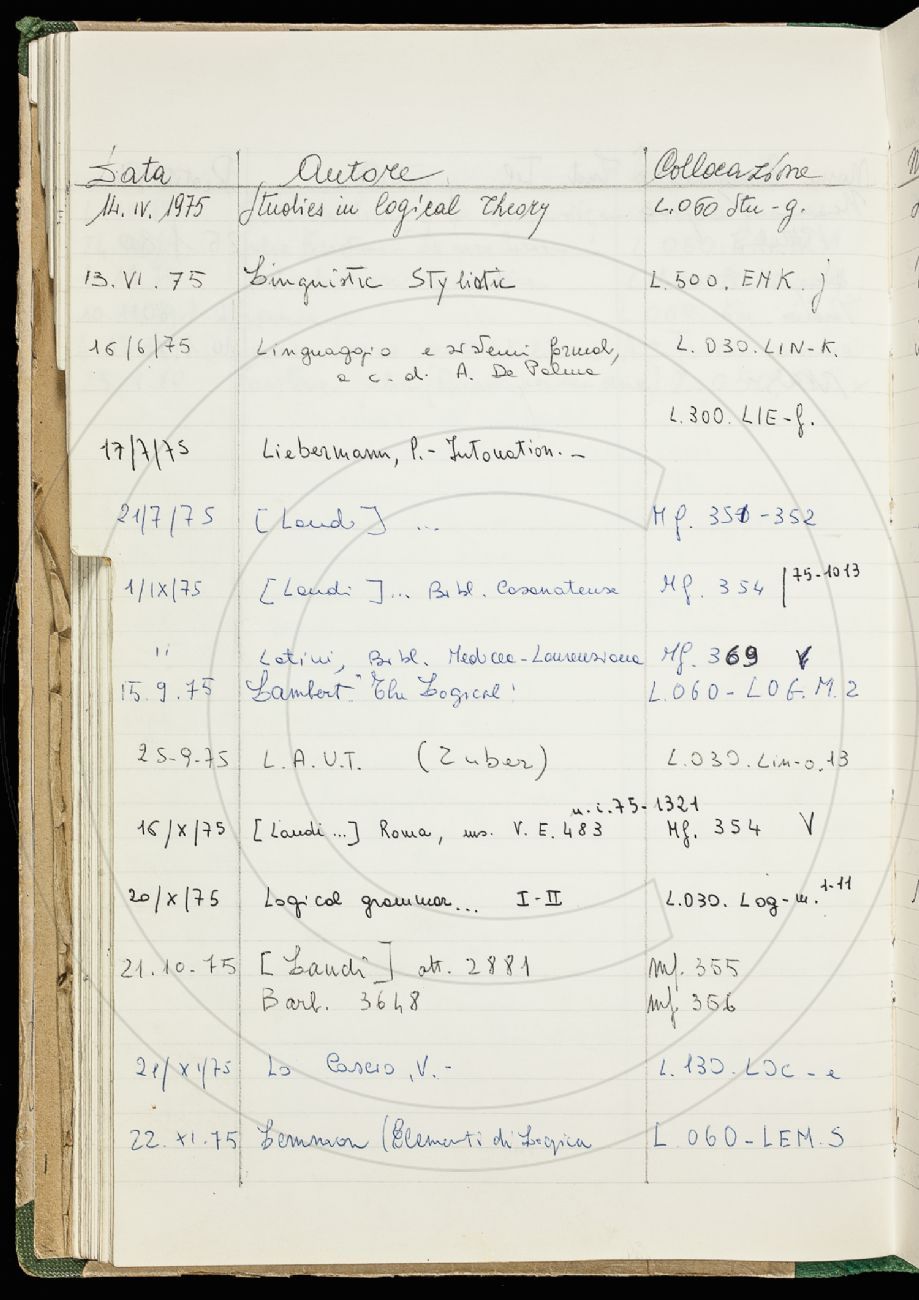 Data Autore Collocazione
14.IV.1975 Studies in logical theory L.060 Stu-g.
13.VI.75 Linguistic Stylistic L.500.ENK.j
16/6/75 Linguaggio e sistemi formal, L.030.LIN-K.
a c. di A. De Palma
L.300.LIE-f.
17/7/75 Liebermann, P.- Intonation.-
21/7/75 [Laudi] ... Mf. 351-352
1/IX/75 [Laudi]... Bibl. Casanatense Mf. 354 75-1013
" Latini, Bibl. Medicea-Laurenziana Mf. 369 V
15.9.75 Lambert "The Logical" L.060-LOG.M.2
25-9-75 L.A.U.T. (Zuber) L.030.Lin-o.13
n.i.75-1321
16/X/75 [Laudi...] Roma, ms. V.E.483 Mf. 354 V
20/X/75 Logical grammar... I-II L.030.Log-m.1-11
21.10.75 [Laudi] ott. 2881 mf. 355
Barb. 3648 mf. 356
21/XI/75 Lo Cascio, V.- L.130.LOC-e
22.XI.75 Lemmon (Elementi di Logica L.060-LEM.S